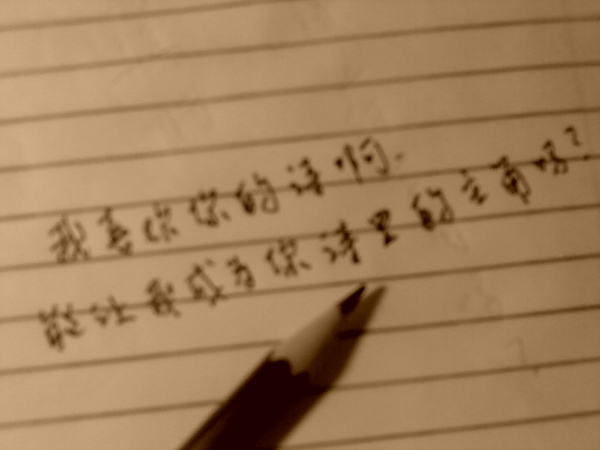 我喜欢你的诗啊.
能让我成为你诗里的主角吗?